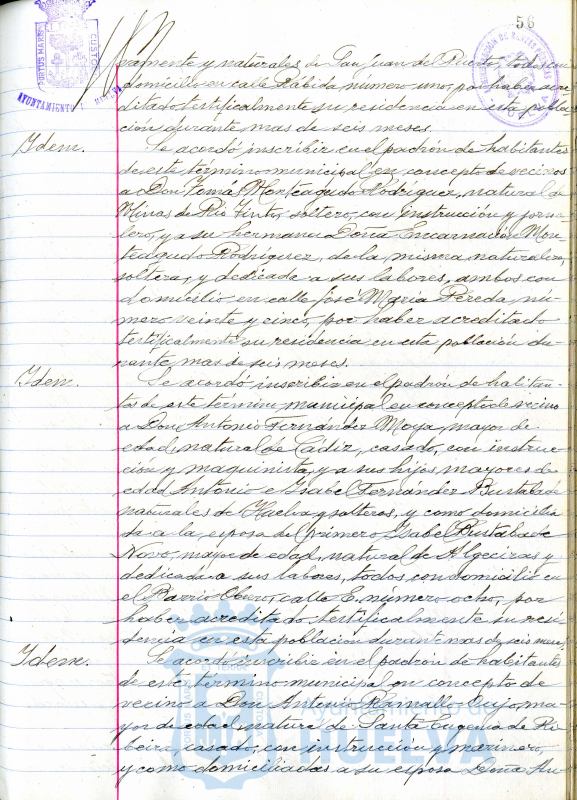 56
PORTUS MARIS CUSTO
AYUNTAMIENTO
vamente y naturales de San Juan del Puerto, todos con
domicilio en calle Rábida número uno, por haber acre-
ditado testificalmente su residencia en esta pobla-
ción durante mas de seis meses.
Idem.
Se acordó inscribir en el padrón de habitantes
de este término municipal en concepto de vecinos
a Don Tomás Monteagudo Rodríguez, natural de
Minas de Rio Tinto, soltero, con instrucción y jorna-
lero, y a su hermana Doña Encarnación Mon-
teagudo Rodriguez, de la misma naturaleza,
soltera, y dedicada a sus labores, ambos con
domicilio en calle José María Pereda, nú-
mero veinte y cinco, por haber acreditado
testificalmente su residencia en esta población du-
rante mas de seis meses.
Idem.
Se acordó inscribir en el padrón de habitan-
tes de este término municipal en concepto de vecino
a Don Antonio Fernández Moya, mayor de
edad, natural de Cádiz, casado, con instruc-
ción y maquinista, y a sus hijos mayores de
edad Antonio e Isabel Fernández Bustabade
naturales de Huelva, solteros, y como domicilia-
da a la esposa del primero Isabel Bustabade
Novo, mayor de edad, natural de Algeciras y
dedicada a sus labores, todos con domicilio en
el Barrio Obrero, calle E. número ocho, por
haber acreditado testificalmente su resi-
dencia en esta población durante mas de seis meses.
Idem.
Se acordó inscribir en el padrón de habitantes
de este término municipal en concepto de
vecino a Don Antonio Ramallo Layo, ma-
yor de edad, natural de Santa Eugenia de Ri-
beira, casado, con instrucción y marinero,
y como domiciliadas a su esposa Doña
Ayuntamiento de
HUELVA